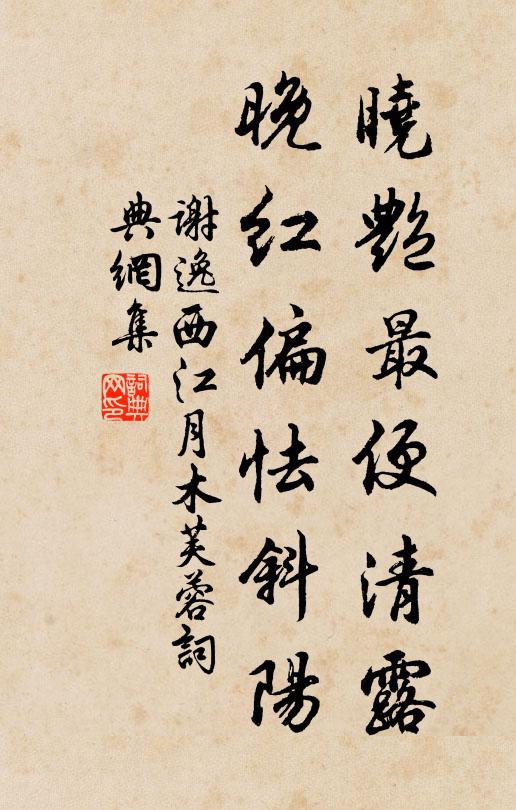 曉艷最便清露
晚紅偏怯斜陽
謝逸西江月木芙蓉詞
典網集
詞典網印